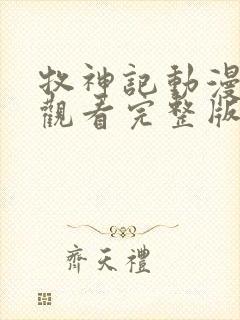 牧神記動漫
觀看完整版
齊天禮